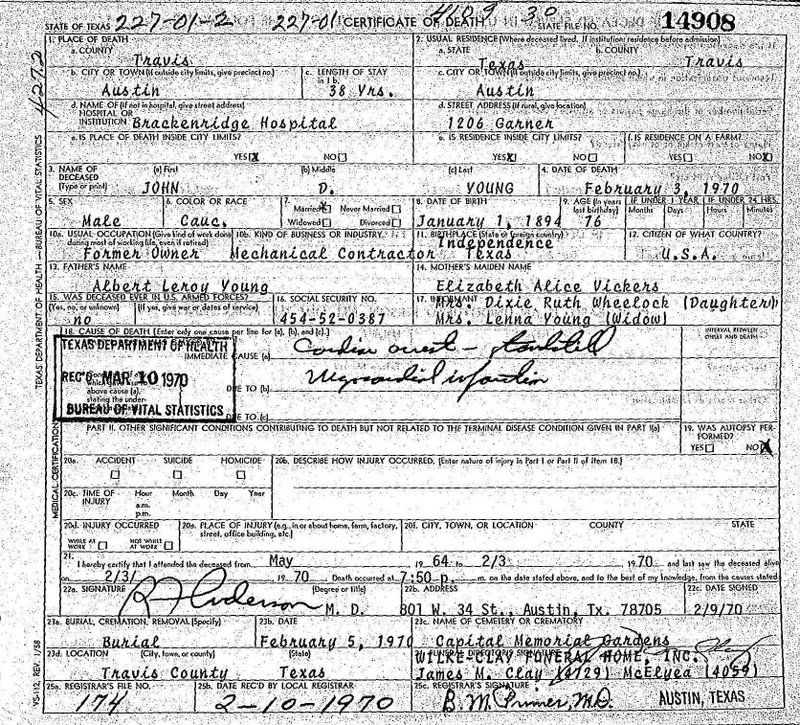 STATE OF TEXAS 227-01-2 227-01 CERTIFICATE OF DEATH 4109 30 STATE FILE NO. 14908
1. PLACE OF DEATH 2. USUAL RESIDENCE (Where deceased lived. If institution: residence before admission)
a. COUNTY Travis a. STATE Texas b. COUNTY Travis
b. CITY OR TOWN (If outside city limits, give precinct no.) c. LENGTH OF STAY in 1 b. c. CITY OR TOWN (If outside city limits, give precinct no.)
Austin 38 Yrs. Austin
d. NAME OF (If not in hospital, give street address) HOSPITAL OR INSTITUTION d. STREET ADDRESS (If rural, give location)
Brackenridge Hospital 1206 Garner
e. IS PLACE OF DEATH INSIDE CITY LIMITS? e. IS RESIDENCE INSIDE CITY LIMITS? f. IS RESIDENCE ON A FARM?
YES X NO YES X NO YES NO X
3. NAME OF DECEASED (Type or print) (a) First (b) Middle (c) Last 4. DATE OF DEATH
JOHN D. YOUNG February 3, 1970
5. SEX 6. COLOR OR RACE 7. Married X Never Married Widowed Divorced 8. DATE OF BIRTH 9. AGE (In years last birthday) IF UNDER 1 YEAR Months Days IF UNDER 24 HRS. Hours Minutes
Male Cauc. January 1, 1894 76
10a. USUAL OCCUPATION (Give kind of work done during most of working life, even if retired) 10b. KIND OF BUSINESS OR INDUSTRY. 11. BIRTHPLACE (State or foreign country) 12. CITIZEN OF WHAT COUNTRY?
Former Owner Mechanical Contractor Independence Texas U.S.A.
13. FATHER'S NAME 14. MOTHER'S MAIDEN NAME
Albert Leroy Young Elizabeth Alice Vickers
15. WAS DECEASED EVER IN U.S. ARMED FORCES? 16. SOCIAL SECURITY NO. 17. INFORMANT
(Yes, no, or unknown) (If yes, give war or dates of service) Mrs. Dixie Ruth Wheelock (Daughter)
no 454-52-0387 Mrs. Lenna Young (Widow)
18. CAUSE OF DEATH (Enter only one cause per line for (a), (b), and (c).) INTERVAL BETWEEN ONSET AND DEATH
TEXAS DEPARTMENT OF HEALTH
IMMEDIATE CAUSE (a) Cardiac arrest - standstill
REC'D MAR 10 1970
above cause (a), stating the under-
DUE TO (b) Myocardial infarction
BUREAU OF VITAL STATISTICS
DUE TO (c)
PART II. OTHER SIGNIFICANT CONDITIONS CONTRIBUTING TO DEATH BUT NOT RELATED TO THE TERMINAL DISEASE CONDITION GIVEN IN PART I(a) 19. WAS AUTOPSY PERFORMED?
YES NO X
20a. ACCIDENT SUICIDE HOMICIDE 20b. DESCRIBE HOW INJURY OCCURRED. (Enter nature of injury in Part I or Part II of item 18.)
20c. TIME OF INJURY Hour Month Day Year
a.m.
p.m.
20d. INJURY OCCURRED 20e. PLACE OF INJURY (e.g., in or about home, farm, factory, street, office building, etc.) 20f. CITY, TOWN, OR LOCATION COUNTY STATE
WHILE AT WORK NOT WHILE AT WORK
21. I hereby certify that I attended the deceased from May 19 64 to 2/3 1970 and last saw the deceased alive
on 2/3/ 19 70 Death occurred at 7:50 p. m. on the date stated above, and to the best of my knowledge, from the causes stated
22a. SIGNATURE (Degree or title) 22b. ADDRESS 22c. DATE SIGNED
R Anderson M. D. 801 W. 34 St., Austin, Tx. 78705 2/9/70
23a. BURIAL, CREMATION, REMOVAL (Specify) 23b. DATE 23c. NAME OF CEMETERY OR CREMATORY
Burial February 5, 1970 Capital Memorial Gardens
23d. LOCATION (City, town, or county) (State) FUNERAL DIRECTOR'S SIGNATURE
WILKE-CLAY FUNERAL HOME, INC.
Travis County Texas James M. Clay (4729) McElyea (4059)
25a. REGISTRAR'S FILE NO. 25b. DATE REC'D BY LOCAL REGISTRAR 25c. REGISTRAR'S SIGNATURE
174 2-10-1970 B. M. Primer, M.D. AUSTIN, TEXAS
TEXAS DEPARTMENT OF HEALTH — BUREAU OF VITAL STATISTICS
4272
MEDICAL CERTIFICATION
VS-112, REV. 1/58